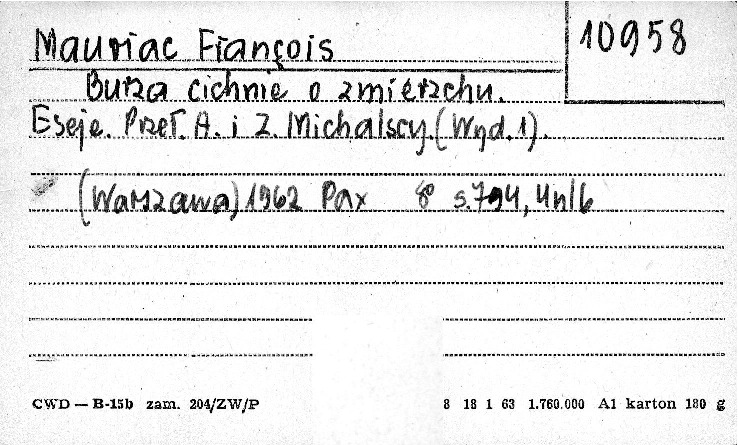 10958
Mauriac François
Burza cichnie o zmierzchu.
Eseje. Przeł. A. i Z. Michalscy. (Wyd. 1).
(Warszawa) 1962 Pax 8° s. 794, 4nlb
CWD — B-15b zam. 204/ZW/P 8 18 1 63 1.760.000 A1 karton 180 g